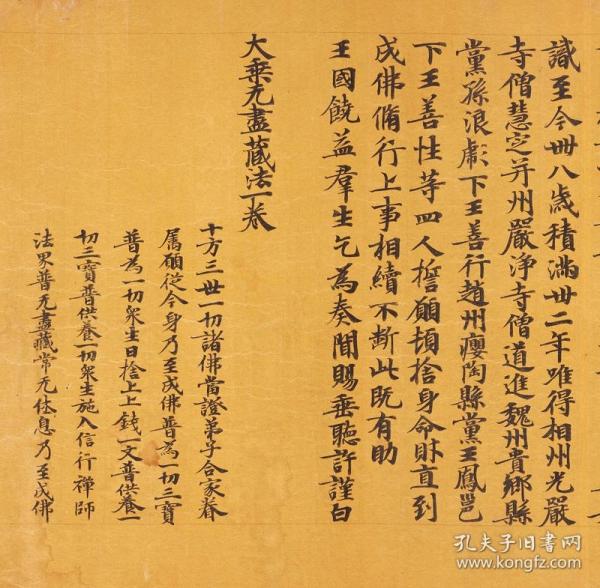 識至今卌八歲積滿卅二年唯得相州光嚴
寺僧慧定并州嚴淨寺僧道進魏州貴鄉縣
黨孫浪彪下王善行趙州癭陶縣黨王鳳邕
下王善性等四人誓願頓捨身命財直到
成佛脩行上事相續不斷此既有助
王國饒益羣生乞為奏聞賜垂聽許謹白
大乘无盡藏法一卷
十方三世一切諸佛當證弟子合家眷
屬願從今身乃至成佛普為一切三寶
普為一切衆生日捨上上錢一文普供養一
切三寶普供養一切衆生施入信行禪師
法界普无盡藏常无休息乃至成佛
孔夫子旧书网
www.kongfz.com